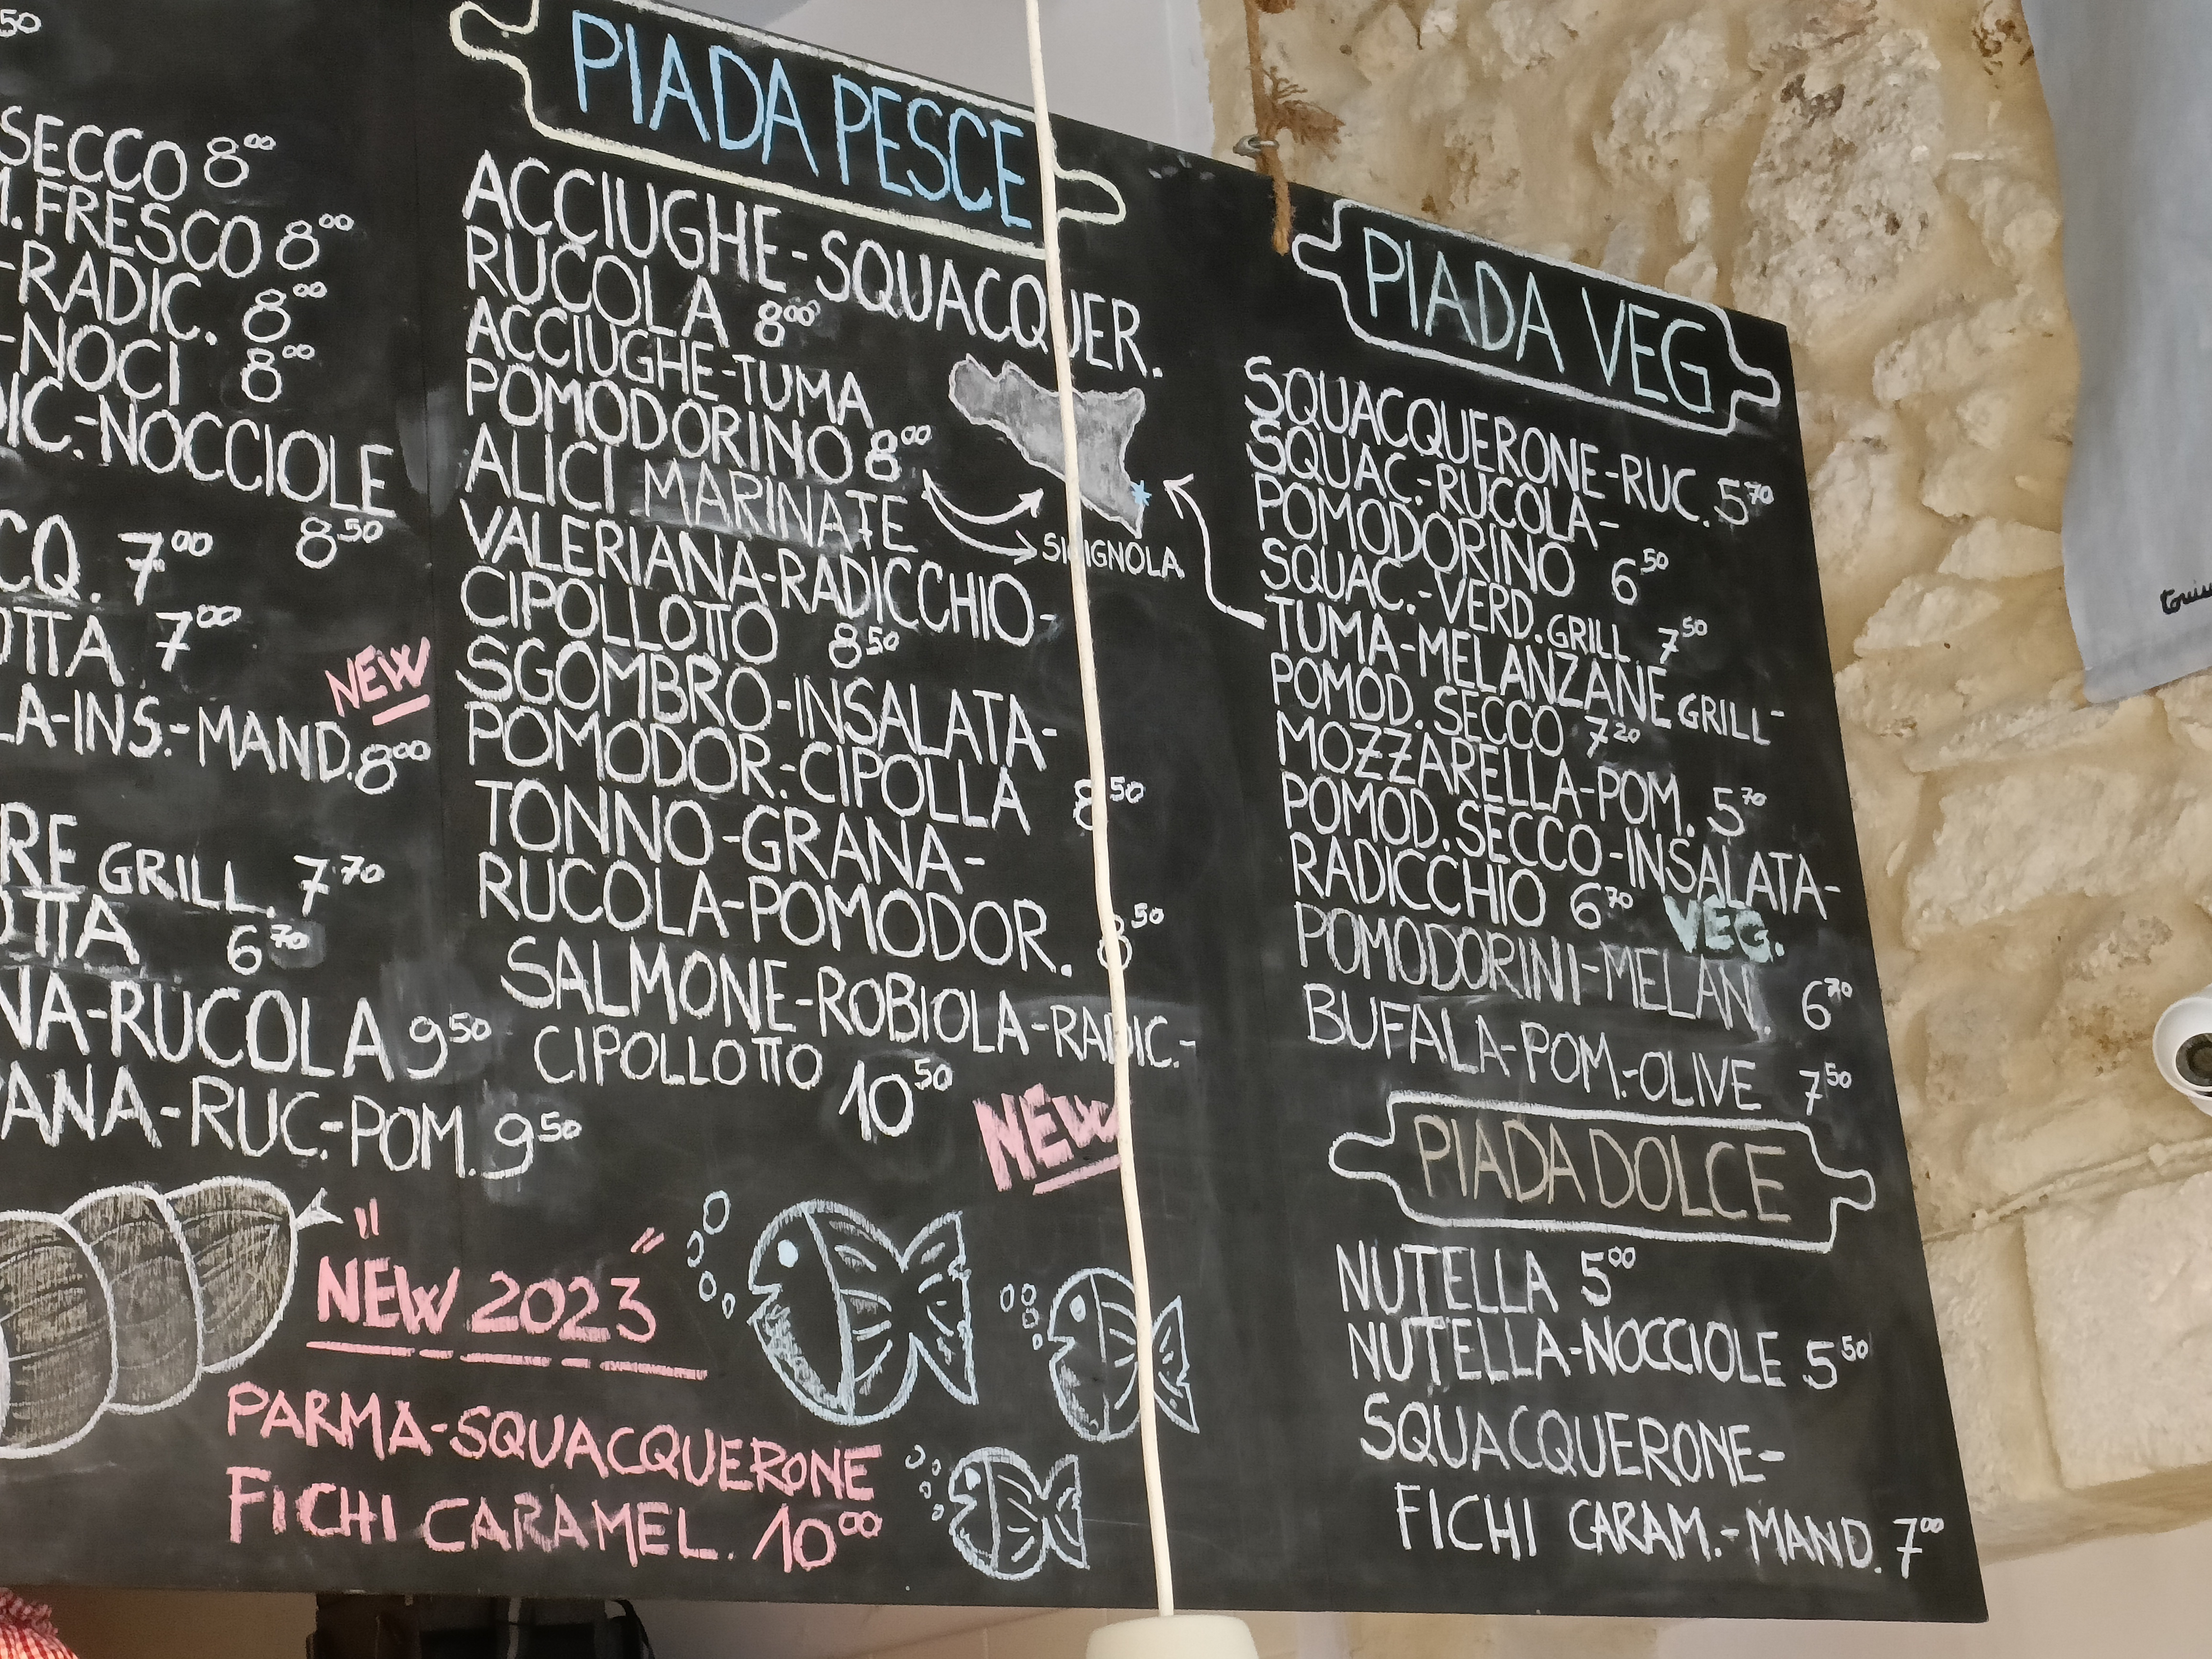 50
SECCO 8.00
M.FRESCO 8.00
-RADIC. 8.00
-NOCI 8.00
DIC.-NOCCIOLE
8.50
CQ. 7.00
OTTA 7.00
NEW
LA-INS.-MAND. 8.00
RE GRILL. 7.70
OTTA 6.70
NA-RUCOLA 9.50
ANA-RUC.-POM. 9.50
"NEW 2023"
PARMA-SQUACQUERONE
FICHI CARAMEL. 10.00
PIADA PESCE
ACCIUGHE-SQUACQUER.
RUCOLA 8.00
ACCIUGHE-TUMA
POMODORINO 8.00
ALICI MARINATE
SICIGNOLA
VALERIANA-RADICCHIO-
CIPOLLOTTO 8.50
SGOMBRO-INSALATA-
POMODOR.-CIPOLLA 8.50
TONNO-GRANA-
RUCOLA-POMODOR. 8.50
SALMONE-ROBIOLA-RADIC-
CIPOLLOTTO 10.50
NEW
PIADA VEG
SQUACQUERONE-RUC. 5.70
SQUAC.-RUCOLA-
POMODORINO 6.50
SQUAC.-VERD. GRILL. 7.50
TUMA-MELANZANE GRILL-
POMOD. SECCO 7.20
MOZZARELLA-POM. 5.70
POMOD. SECCO-INSALATA-
RADICCHIO 6.70 VEG.
POMODORINI-MELAN. 6.70
BUFALA-POM.-OLIVE 7.50
PIADA DOLCE
NUTELLA 5.00
NUTELLA-NOCCIOLE 5.50
SQUACQUERONE-
FICHI CARAM.-MAND. 7.00